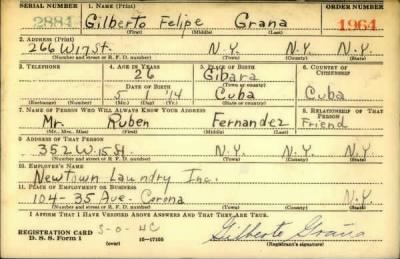 SERIAL NUMBER 1. NAME (Print) ORDER NUMBER
2884 Gilberto Felipe Grana 1964
(First) (Middle) (Last)
2. ADDRESS (Print)
266 W 17 St. N.Y. N.Y. N.Y.
(Number and street or R. F. D. number) (Town) (County) (State)
3. TELEPHONE 4. AGE IN YEARS 5. PLACE OF BIRTH 6. COUNTRY OF CITIZENSHIP
26 Gibara
DATE OF BIRTH (Town or county)
5 1 '14 Cuba Cuba
(Exchange) (Number) (Mo.) (Day) (Yr.) (State or country)
7. NAME OF PERSON WHO WILL ALWAYS KNOW YOUR ADDRESS 8. RELATIONSHIP OF THAT PERSON
Mr. Ruben Fernandez Friend
(Mr., Mrs., Miss) (First) (Middle) (Last)
9. ADDRESS OF THAT PERSON
352 W. 15 St. N.Y. N.Y. N.Y.
(Number and street or R. F. D. number) (Town) (County) (State)
10. EMPLOYER'S NAME
Newtown Laundry Inc.
11. PLACE OF EMPLOYMENT OR BUSINESS
104-35 Ave. Corona N.Y.
(Number and street or R. F. D. number) (Town) (County) (State)
I AFFIRM THAT I HAVE VERIFIED ABOVE ANSWERS AND THAT THEY ARE TRUE.
REGISTRATION CARD
D. S. S. Form 1 (over) 16-17105
Gilberto Graña
(Registrant's signature)